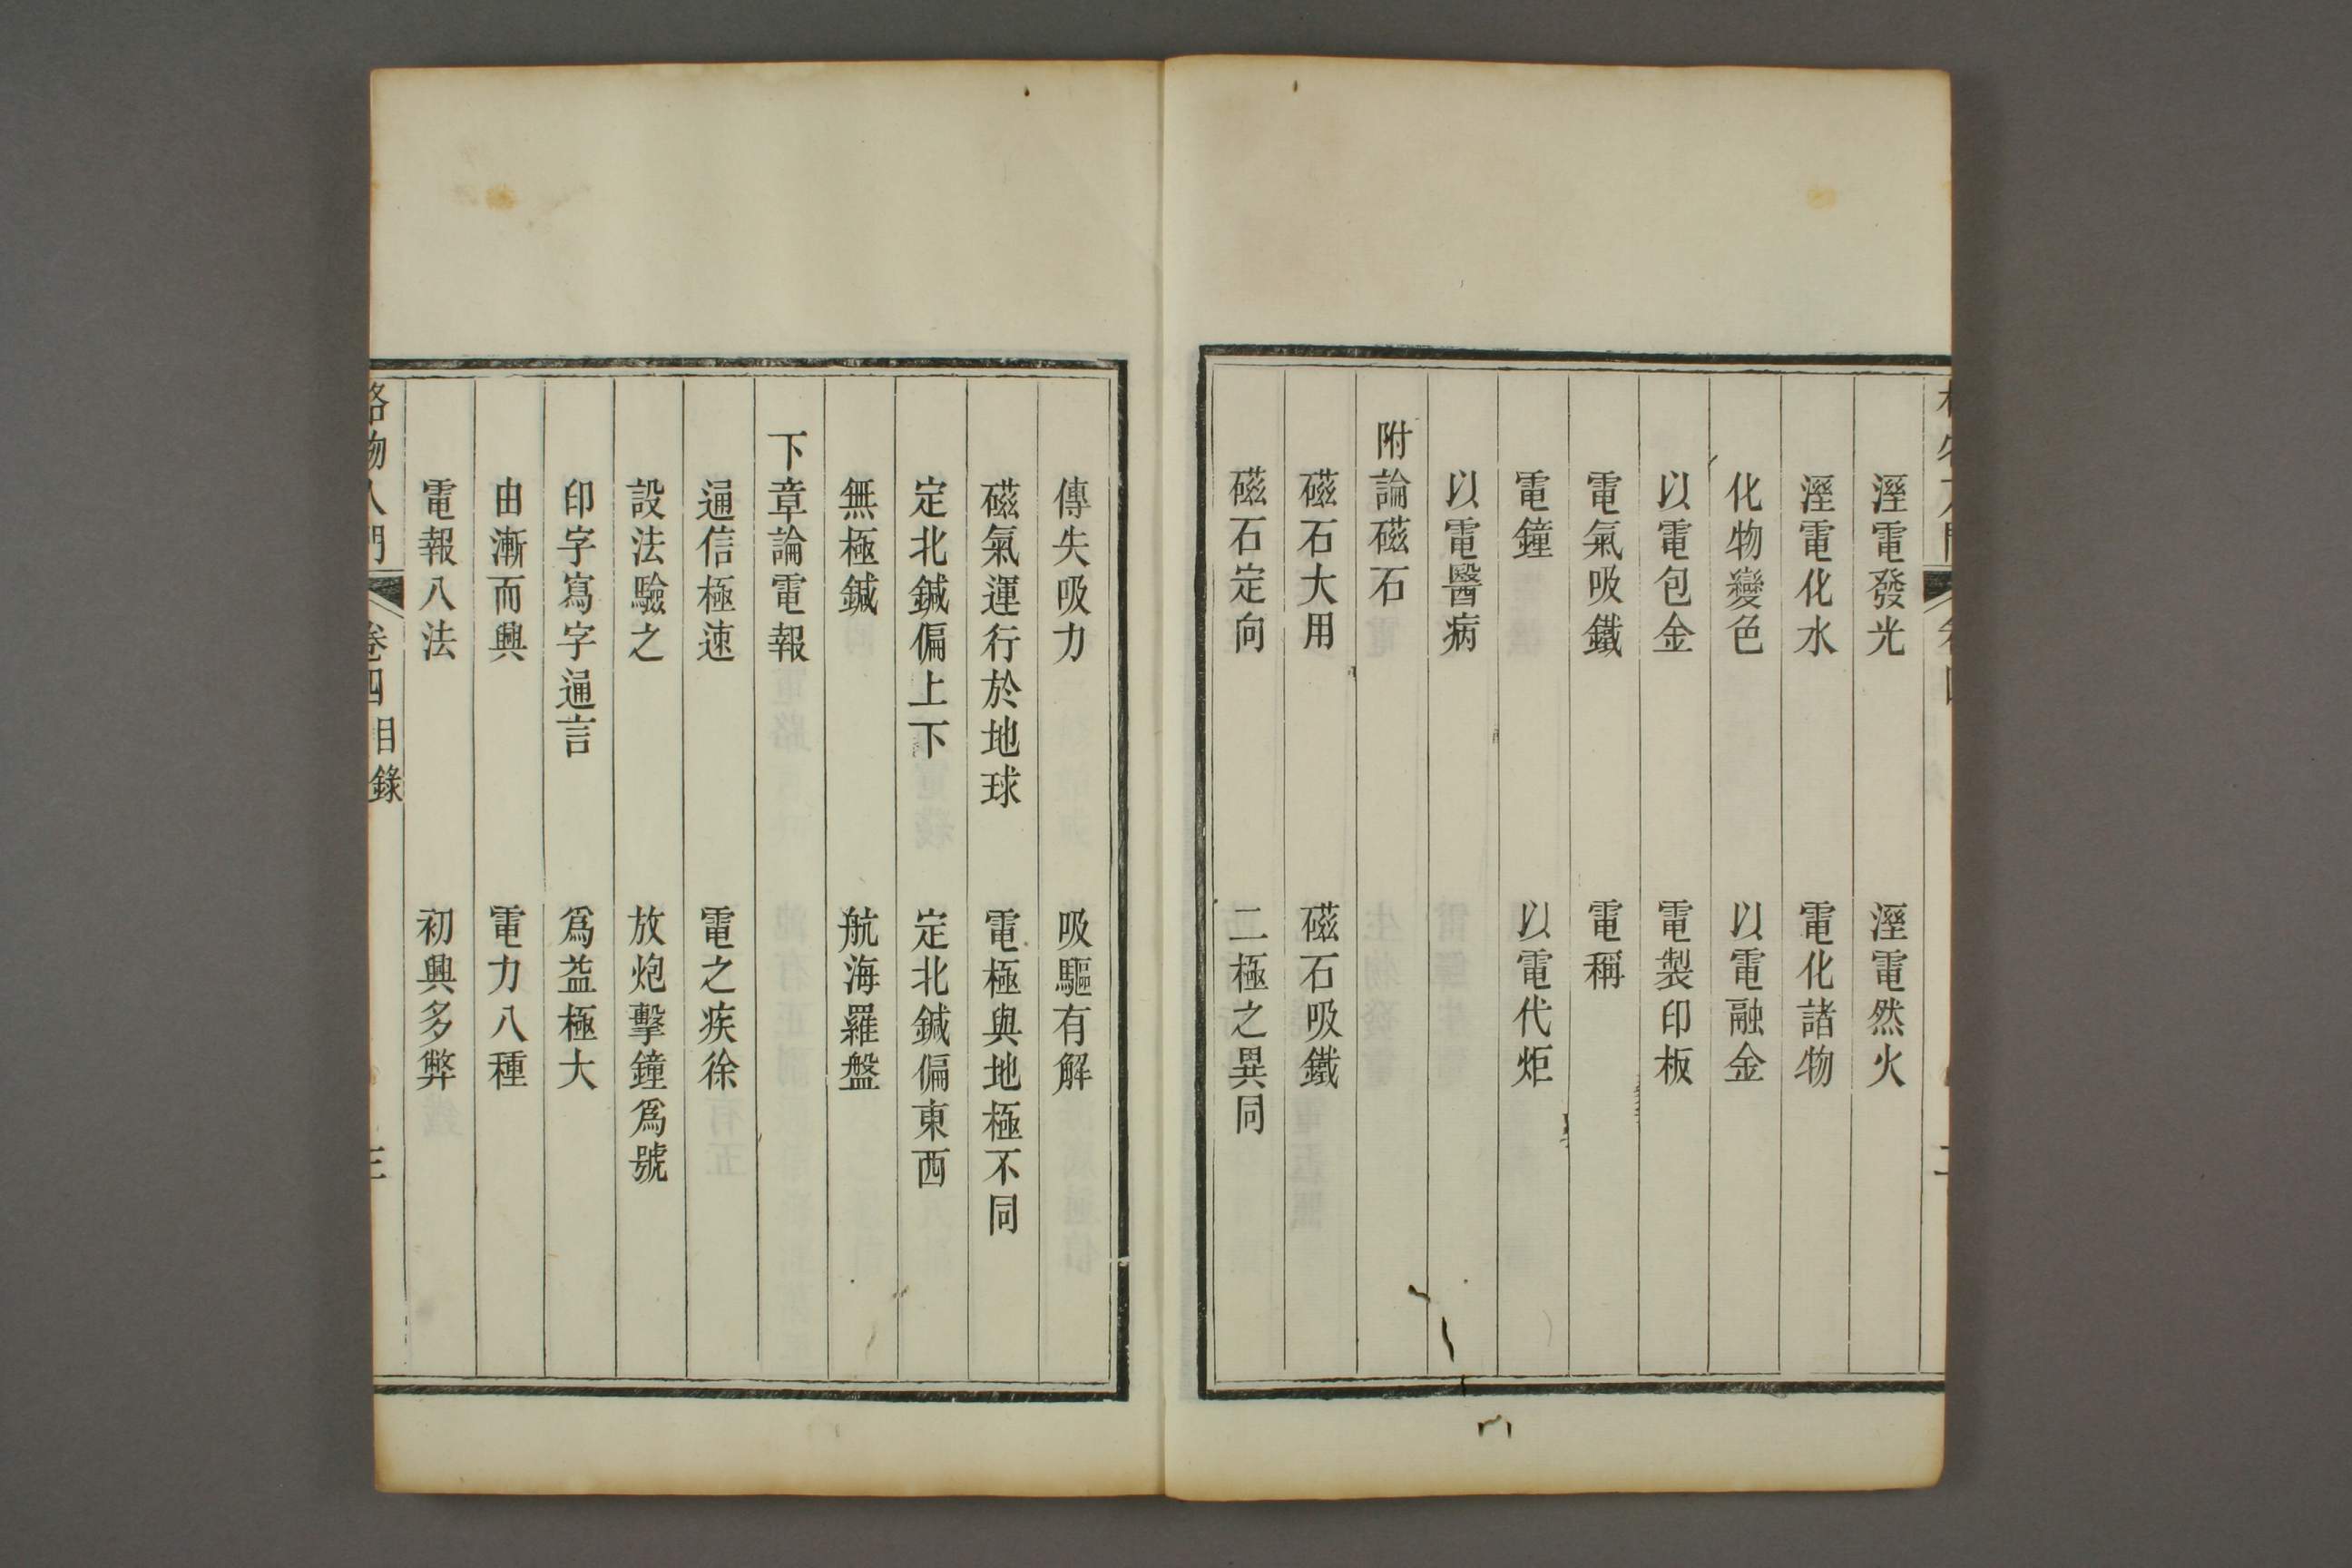 溼電發光　溼電然火
溼電化水　電化諸物
化物變色　以電融金
以電包金　電製印板
電氣吸鐵　電稱
電鐘　以電代炬
以電醫病
附論磁石
磁石大用　磁石吸鐵
磁石定向　二極之異同
傳失吸力　吸驅有解
磁氣運行於地球　電極與地極不同
定北鍼偏上下　定北鍼偏東西
無極鍼　航海羅盤
下章論電報
通信極速　電之疾徐
設法驗之　放炮擊鐘爲號
印字寫字通言　爲益極大
由漸而興　電力八種
電報八法　初興多弊
格物入門　卷四目錄　三